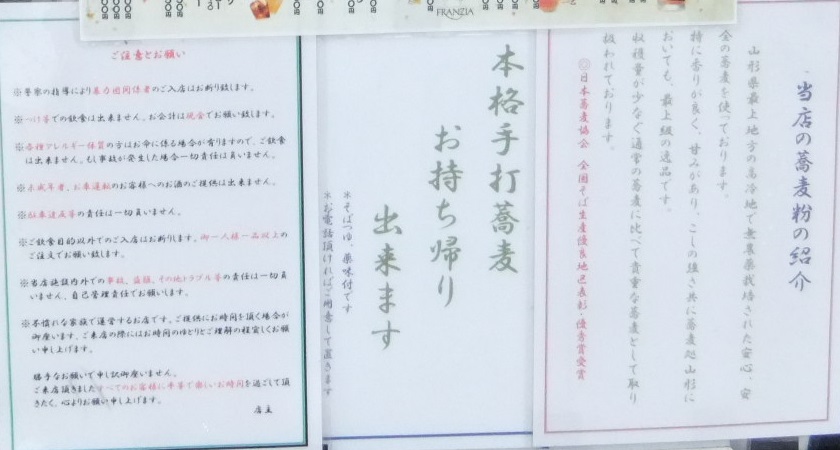 FRANZIA
ご注意とお願い
※警察の指導により暴力団関係者のご入店はお断り致します。
※つけ等での飲食は出来ません。お会計は現金でお願い致します。
※各種アレルギー体質の方はお命に係る場合が有りますので、ご飲食
は出来ません。もし事故が発生した場合一切責任は負いません。
※未成年者、お車運転のお客様へのお酒のご提供は出来ません。
※駐車違反等の責任は一切負いません。
※ご飲食目的以外でのご入店はお断りします。御一人様一品以上の
ご注文でお願い致します。
※当店施設内外での事故、盗難、その他トラブル等の責任は一切負
いません、自己管理責任でお願いします。
※不慣れな家族で運営するお店です。ご提供にお時間を頂く場合が
御座います。ご来店の際にはお時間のゆとりとご理解の程宜しくお願
い申し上げます。
勝手なお願いで申し訳御座いません。
ご来店頂きましたすべてのお客様に平等で楽しいお時間を過ごして頂
きたく、心よりお願い申し上げます。
店主
本格手打蕎麦
お持ち帰り
出来ます
*そばつゆ、薬味付です
*お電話頂ければご用意して置きます
当店の蕎麦粉の紹介
山形県最上地方の高冷地で無農薬栽培された安心、安
全の蕎麦を使っております。
特に香りが良く、甘みがあり、こしの強さ共に蕎麦処山形に
おいても、最上級の逸品です。
収穫量が少なく通常の蕎麦に比べて貴重な蕎麦として取り
扱われております。
◎日本蕎麦協会 全国そば生産優良地区表彰・優秀賞受賞